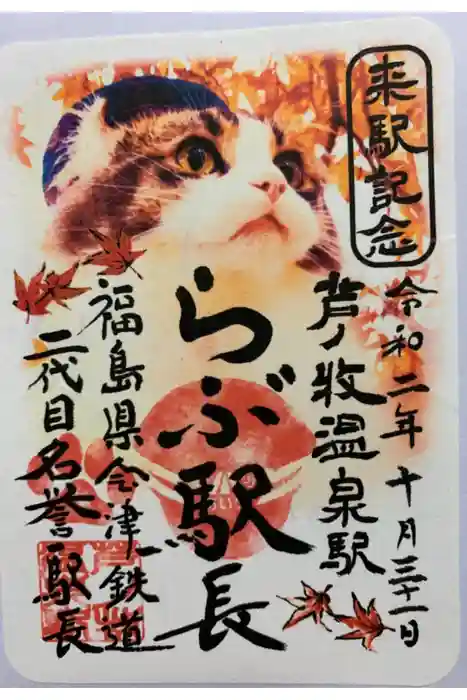 来駅記念
令和二年十月三十一日
芦ノ牧温泉駅
らぶ駅長
福島県会津鉄道
二代目名誉駅長